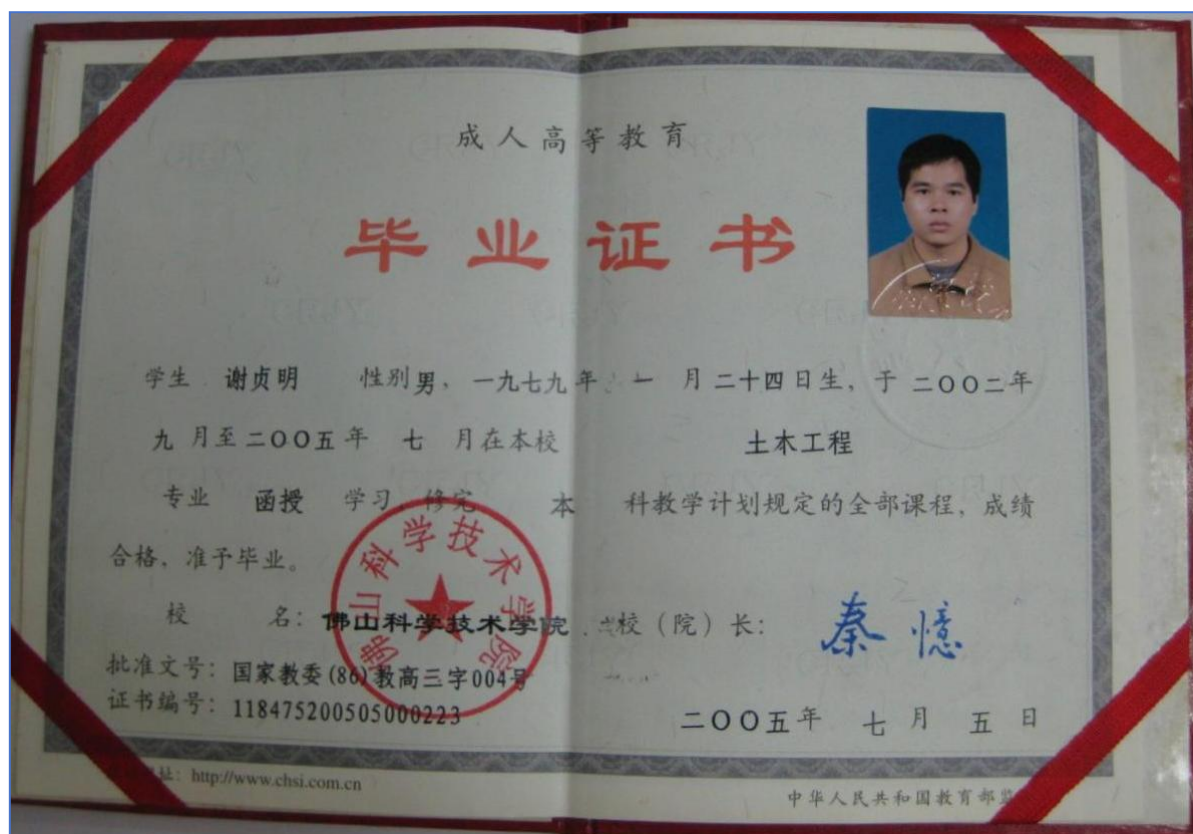 成人高等教育
毕业证书
学生 谢贞明 性别男, 一九七九年 一 月二十四日生, 于二OO二年
九 月至二OO五年 七 月在本校 土木工程
专业 函授 学习, 修完 本 科教学计划规定的全部课程, 成绩
合格, 准予毕业。
校 名: 佛山科学技术学院 校(院)长: 秦憶
批准文号: 国家教委(86)教高三字004号
证书编号: 118475200505000223
二OO五年 七 月 五 日
佛山科学技术学院
址: http://www.chsi.com.cn
中华人民共和国教育部监